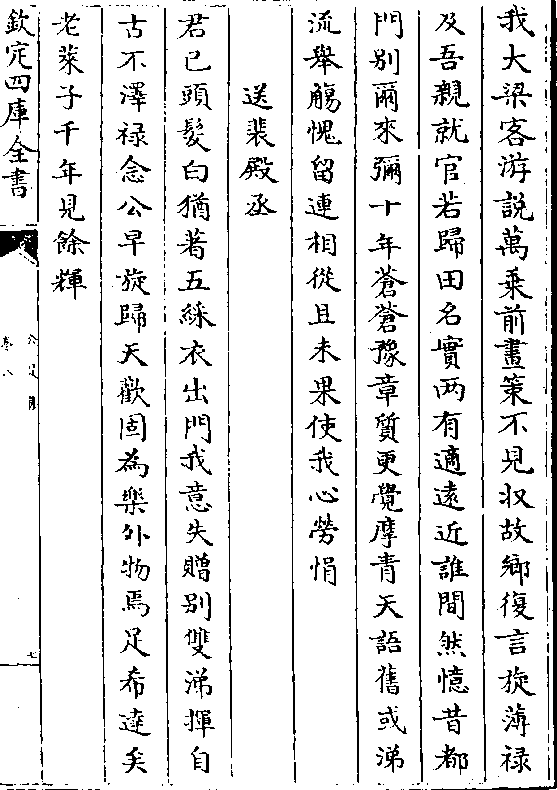 我大梁客游說萬乗前畫策不見収故鄉復言旋薄禄
及吾親就官若歸田名實两有適遠近誰間然憶昔都
門别爾來彌十年蒼蒼豫章質更覺摩青天語舊或涕
流舉觴愧留連相從且未果使我心勞悁
送裴殿丞
君已頭髮白猶著五綵衣出門我意失贈别雙涕揮自
古不澤禄念公早旋歸天歡固為樂外物焉足希逹矣
老萊子千年見餘輝
欽定四庫全書